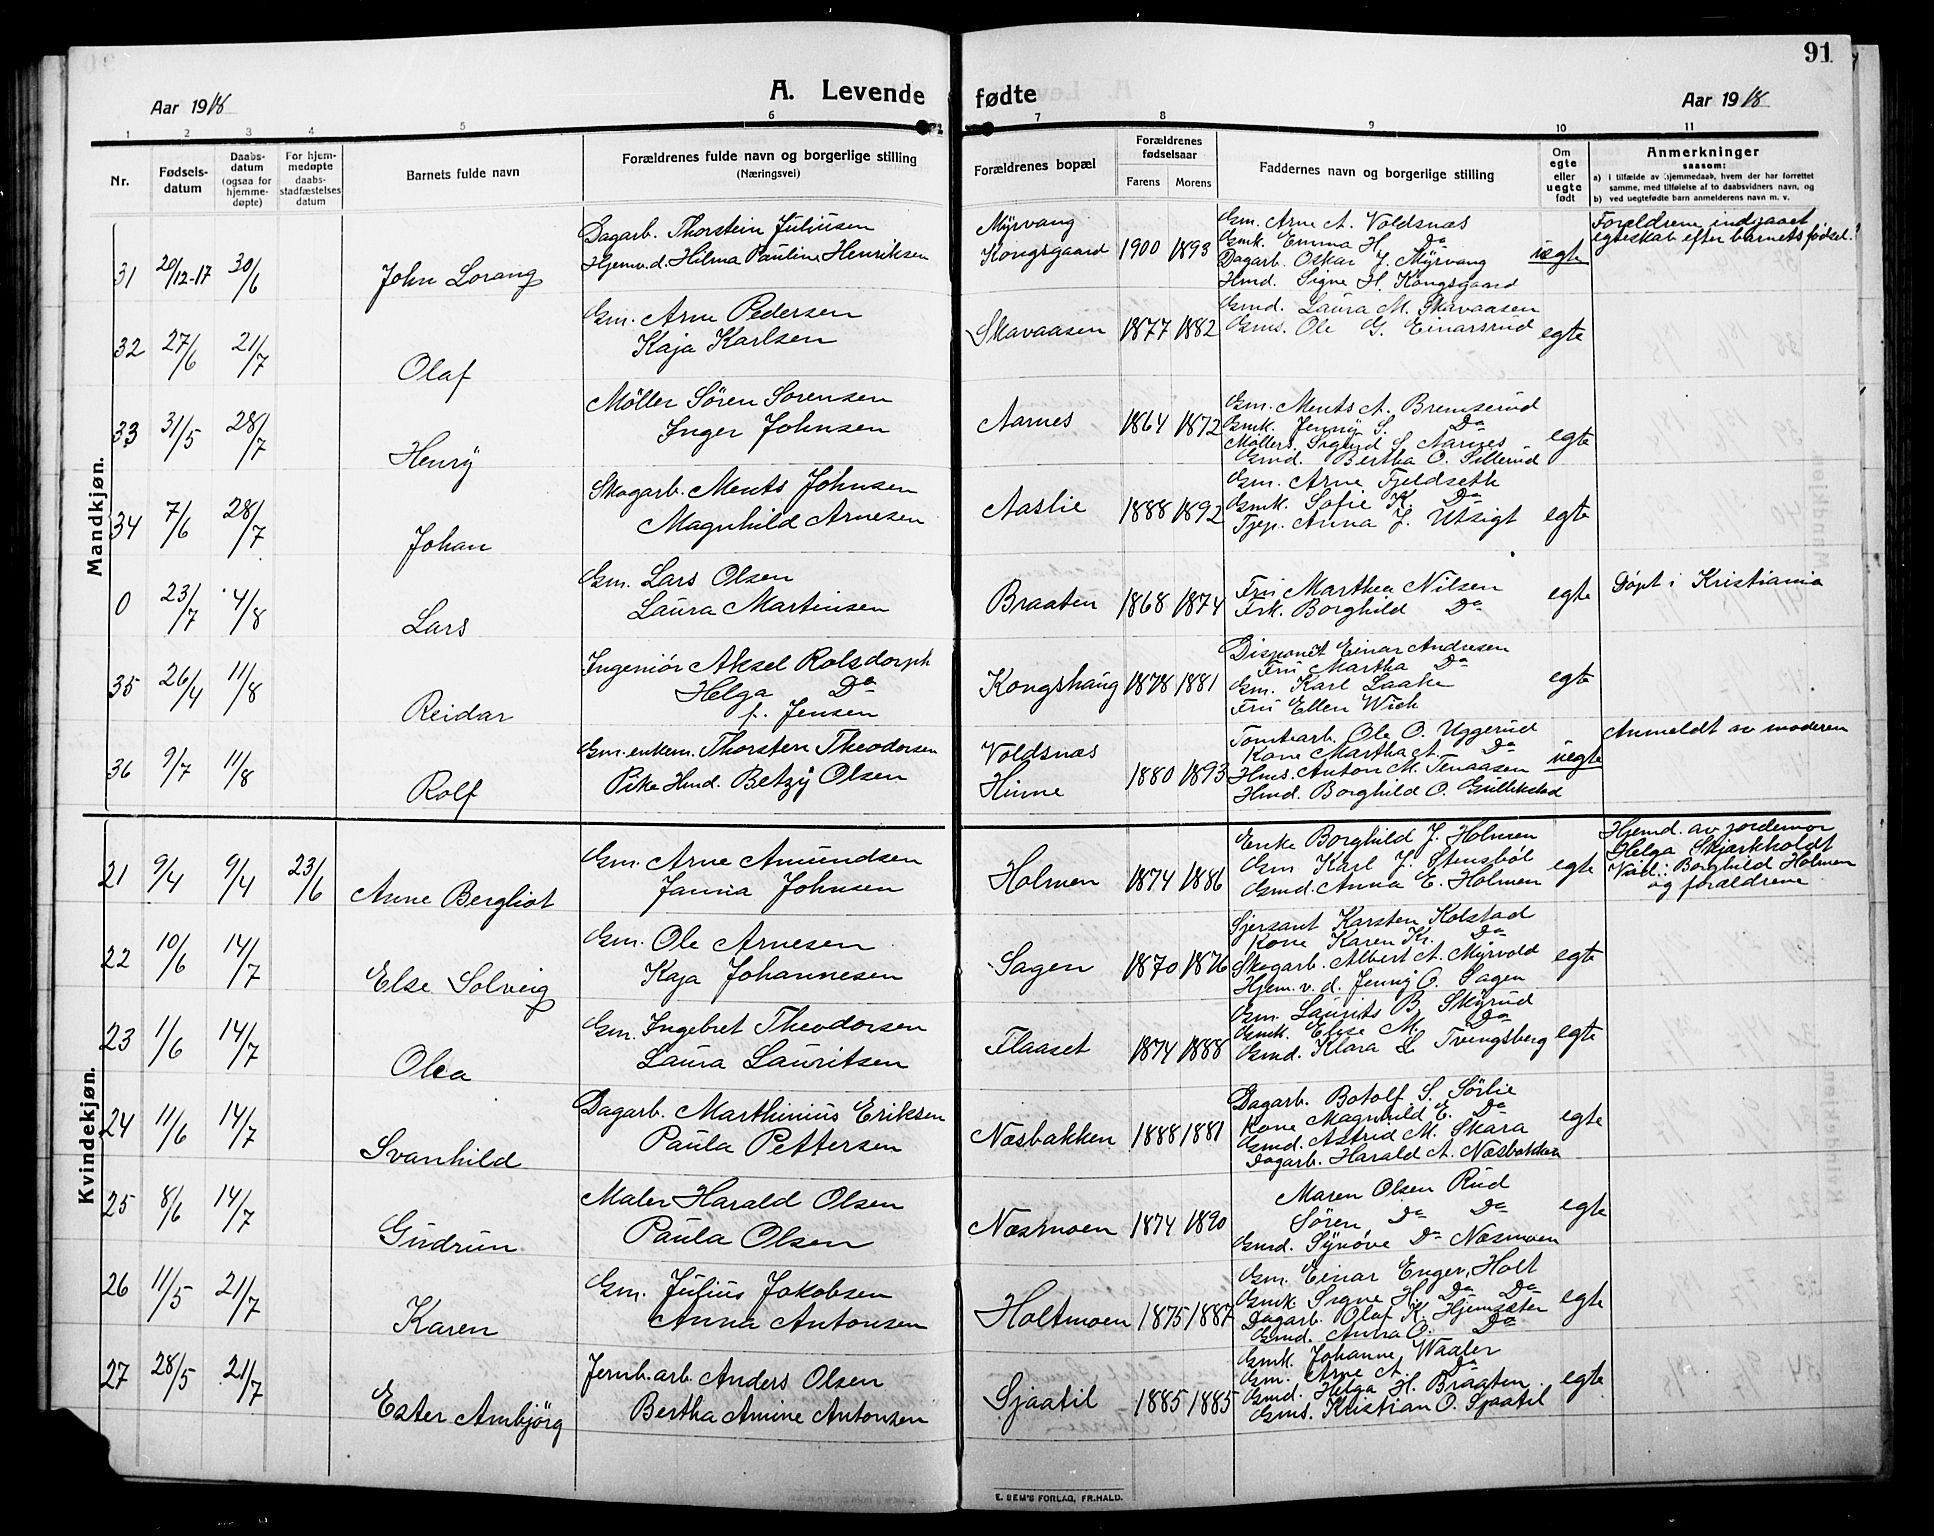 91
A. Levende fødte
Aar 1918
Aar 1918
1 2 3 4 5 6 7 8 9 10 11
Nr.
Fødsels-
datum
Daabs-
datum
(ogsaa for
hjemme-
døpte)
For hjem-
medøpte
daabs-
stadfæstelses
datum
Barnets fulde navn
Forældrenes fulde navn og borgerlige stilling
(Næringsvei)
Forældrenes bopæl
Forældrenes
fødselsaar
Farens Morens
Faddernes navn og borgerlige stilling
Om
egte
eller
uegte
født
Anmerkninger
saasom:
a) i tilfælde av hjemmedaab, hvem der har forrettet
samme, med tilføielse af to daabsvidners navn, og
b) ved uegtefødte barn anmelderens navn m. v.
Mandkjøn.
31 20/12-17 30/6 John Lorang
Dagarb. Thorstein Juliusen
Hjemv.d. Hilma Pauline Henriksen
Myrvang
Kongsgaard 1900 1893
Gm. Arne A. Voldsnæs
Gmk. Emma H. Do
Dagarb. Oskar J. Myrvang
Hmd. Signe H. Kongsgaard
uegte
Forældrene indgaaet
egteskab efter barnets fødsel.
32 27/6 21/7 Olaf
Gm. Arne Pedersen
Kaja Karlsen
Skavaasen 1877 1882
Gmd. Laura M. Skavaasen
Gms. Ole G. Einarsrud
egte
33 31/5 28/7 Henry
Møller Søren Sorensen
Inger Johnsen
Aarnes 1864 1872
Gm. Ments A. Bremserud
Gmk. Jenny S. Do
Møllers. Sigurd S. Aarnes
Gmd. Bertha O. Sillerud
egte
34 7/6 28/7 Johan
Skogarb. Ments Johnsen
Magnhild Arnesen
Aaslie 1888 1892
Gm. Arne Fjeldseth
Gmk. Sofie K. Do
Tjep. Anna J. Utsigt
egte
0 23/7 4/8 Lars
Gm. Lars Olsen
Laura Martinsen
Braaten 1868 1874
Fru Marthea Nilsen
Frk. Borghild Do
egte
Døpt i Kristiania
35 26/4 11/8 Reidar
Ingeniør Aksel Rolsdorph
Helga Do
f. Jensen
Kongshaug 1878 1881
Disponent Einar Andresen
Fru Martha Do
Gm. Karl Laake
Fru Ellen Wich
egte
36 9/7 11/8 Rolf
Gm. enkem. Thorsten Theodorsen
Pike Hmd. Betzy Olsen
Voldsnæs
Hinne 1880 1893
Tomtearb. Ole O. Uggerud
Kone Martha A. Do
Hms. Anton M. Tenaasen
Hmd. Borghild O. Gullikstad
uegte
Anmeldt av moderen
Kvindekjøn.
21 9/4 9/4 23/6 Anne Bergliot
Gm. Arne Amundsen
Janna Johnsen
Holmen 1874 1886
Enke Borghild J. Holmen
Gm Karl J. Stensbøl
Gmd. Anna E. Holmen
egte
Hjemd. av jordemor
Helga Skjærkholdt
Vid.: Borghild Holmen
og forældrene
22 10/6 14/7 Else Solveig
Gm. Ole Arnesen
Kaja Johannesen
Sagen 1870 1876
Sjersant Karsten Kolstad
Kone Karen Kr. Do
Skogarb. Albert A. Myrvold
Hjem.v.d. Jenny O. Sagen
egte
23 1/6 14/7 Olea
Gm. Ingebret Theodorsen
Laura Lauritsen
Flaaset 1874 1888
Gm. Laurits B. Skyrud
Gmk. Elise M. Do
Gmd. Klara L. Tvengsberg
egte
24 11/6 14/7 Svanhild
Dagarb. Marthinius Eriksen
Paula Pettersen
Næsbakken 1888 1881
Dagarb. Botolf S. Sørlie
Kone Magnhild E. Do
Gmd. Astrid M. Skara
Dagarb. Harald A. Næsbakken
egte
25 8/6 14/7 Gudrun
Maler Harald Olsen
Paula Olsen
Næsmoen 1874 1890
Maren Olsen Rud
Søren Do Do
Gmd. Synøve Do Næsmoen
egte
26 11/5 21/7 Karen
Gm. Julius Jakobsen
Anna Antonsen
Holtmoen 1875 1887
Gm. Einar Enger, Holt
Gmk. Signe H. Do Do
Dagarb. Olaf K. Hjemsæter
Gmd. Anna O. Do
egte
27 28/5 21/7 Ester Ambjørg
Jernb.arb. Anders Olsen
Bertha Amine Antonsen
Sjaatil 1885 1885
Gmk. Johanne Waaler
Gm. Arne A. Do
Gmd. Helga H. Braaten
Gms. Kristian O. Sjaatil
egte
E. SEM'S FORLAG, FR.HALD.